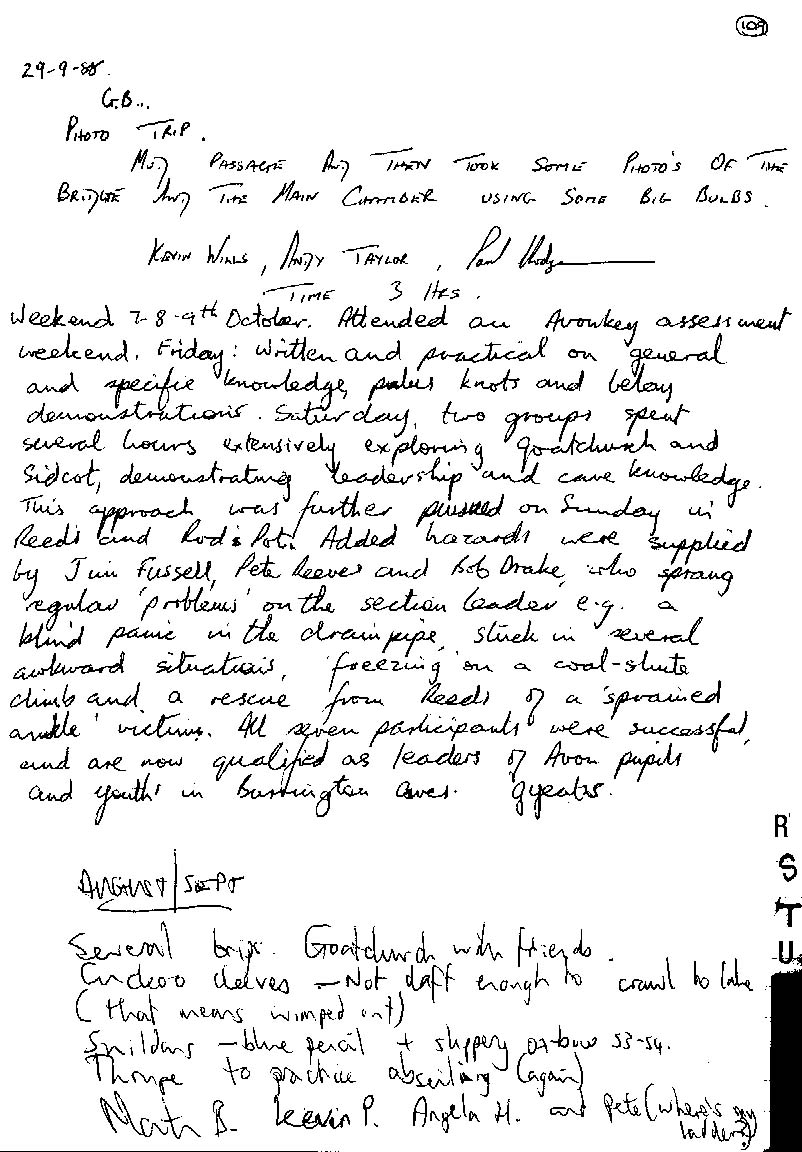 109
29-9-88.
G.B...
PHOTO TRIP.
MUD PASSAGE AND THEN TOOK SOME PHOTO'S OF THE
BRIDGE AND THE MAIN CHAMBER USING SOME BIG BULBS.
KEVIN WILLS, ANDY TAYLOR, Paul
TIME 3 HRS.
Weekend 7-8-9th October. Attended an Avonkey assessment
weekend. Friday: Written and practical on general
and specific knowledge, plus knots and belay
demonstrations. Saturday, two groups spent
several hours extensively exploring Goatchurch and
Sidcot, demonstrating leadership and cave knowledge.
This approach was further pursued on Sunday in
Reeds and Rod's Pot. Added hazards were supplied
by Jim Fussell, Pete Reeves and Bob Drake, who sprang
regular 'problems' on the section leader e.g. a
blind panic in the drainpipe, stuck in several
awkward situations, 'freezing' on a coal-shute
climb and a rescue from Reeds of a 'sprained
ankle' victim. All seven participants were successful,
and are now qualified as leaders of Avon pupils
and youth in Burrington caves.
AUGUST/SEPT
Several trips. Goatchurch with friends.
Cuckoo cleeves - Not daft enough to crawl to lake
(that means wimped out)
Swildons - blue pencil + slippery ox-bow 53-54.
Thrupe to practice abseiling (again)
Martin B. Kevin P. Angela H. and Pete (where's my
ladder?)
R
S
T
U